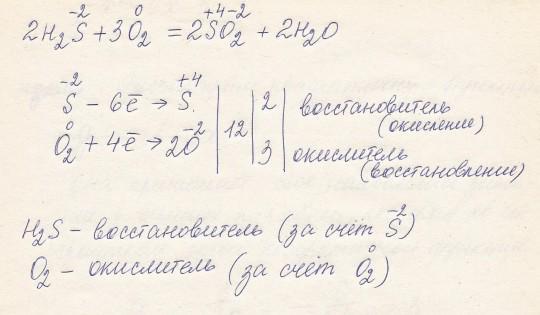 2H₂S⁻² + 3O₂⁰ = 2S⁺⁴O₂⁻² + 2H₂O
S⁻² − 6ē → S⁺⁴ | 12 | 2 | восстановитель (окисление)
O₂⁰ + 4ē → 2O⁻² | 3 | окислитель (восстановление)
H₂S – восстановитель (за счёт S⁻²)
O₂ – окислитель (за счёт O₂⁰)